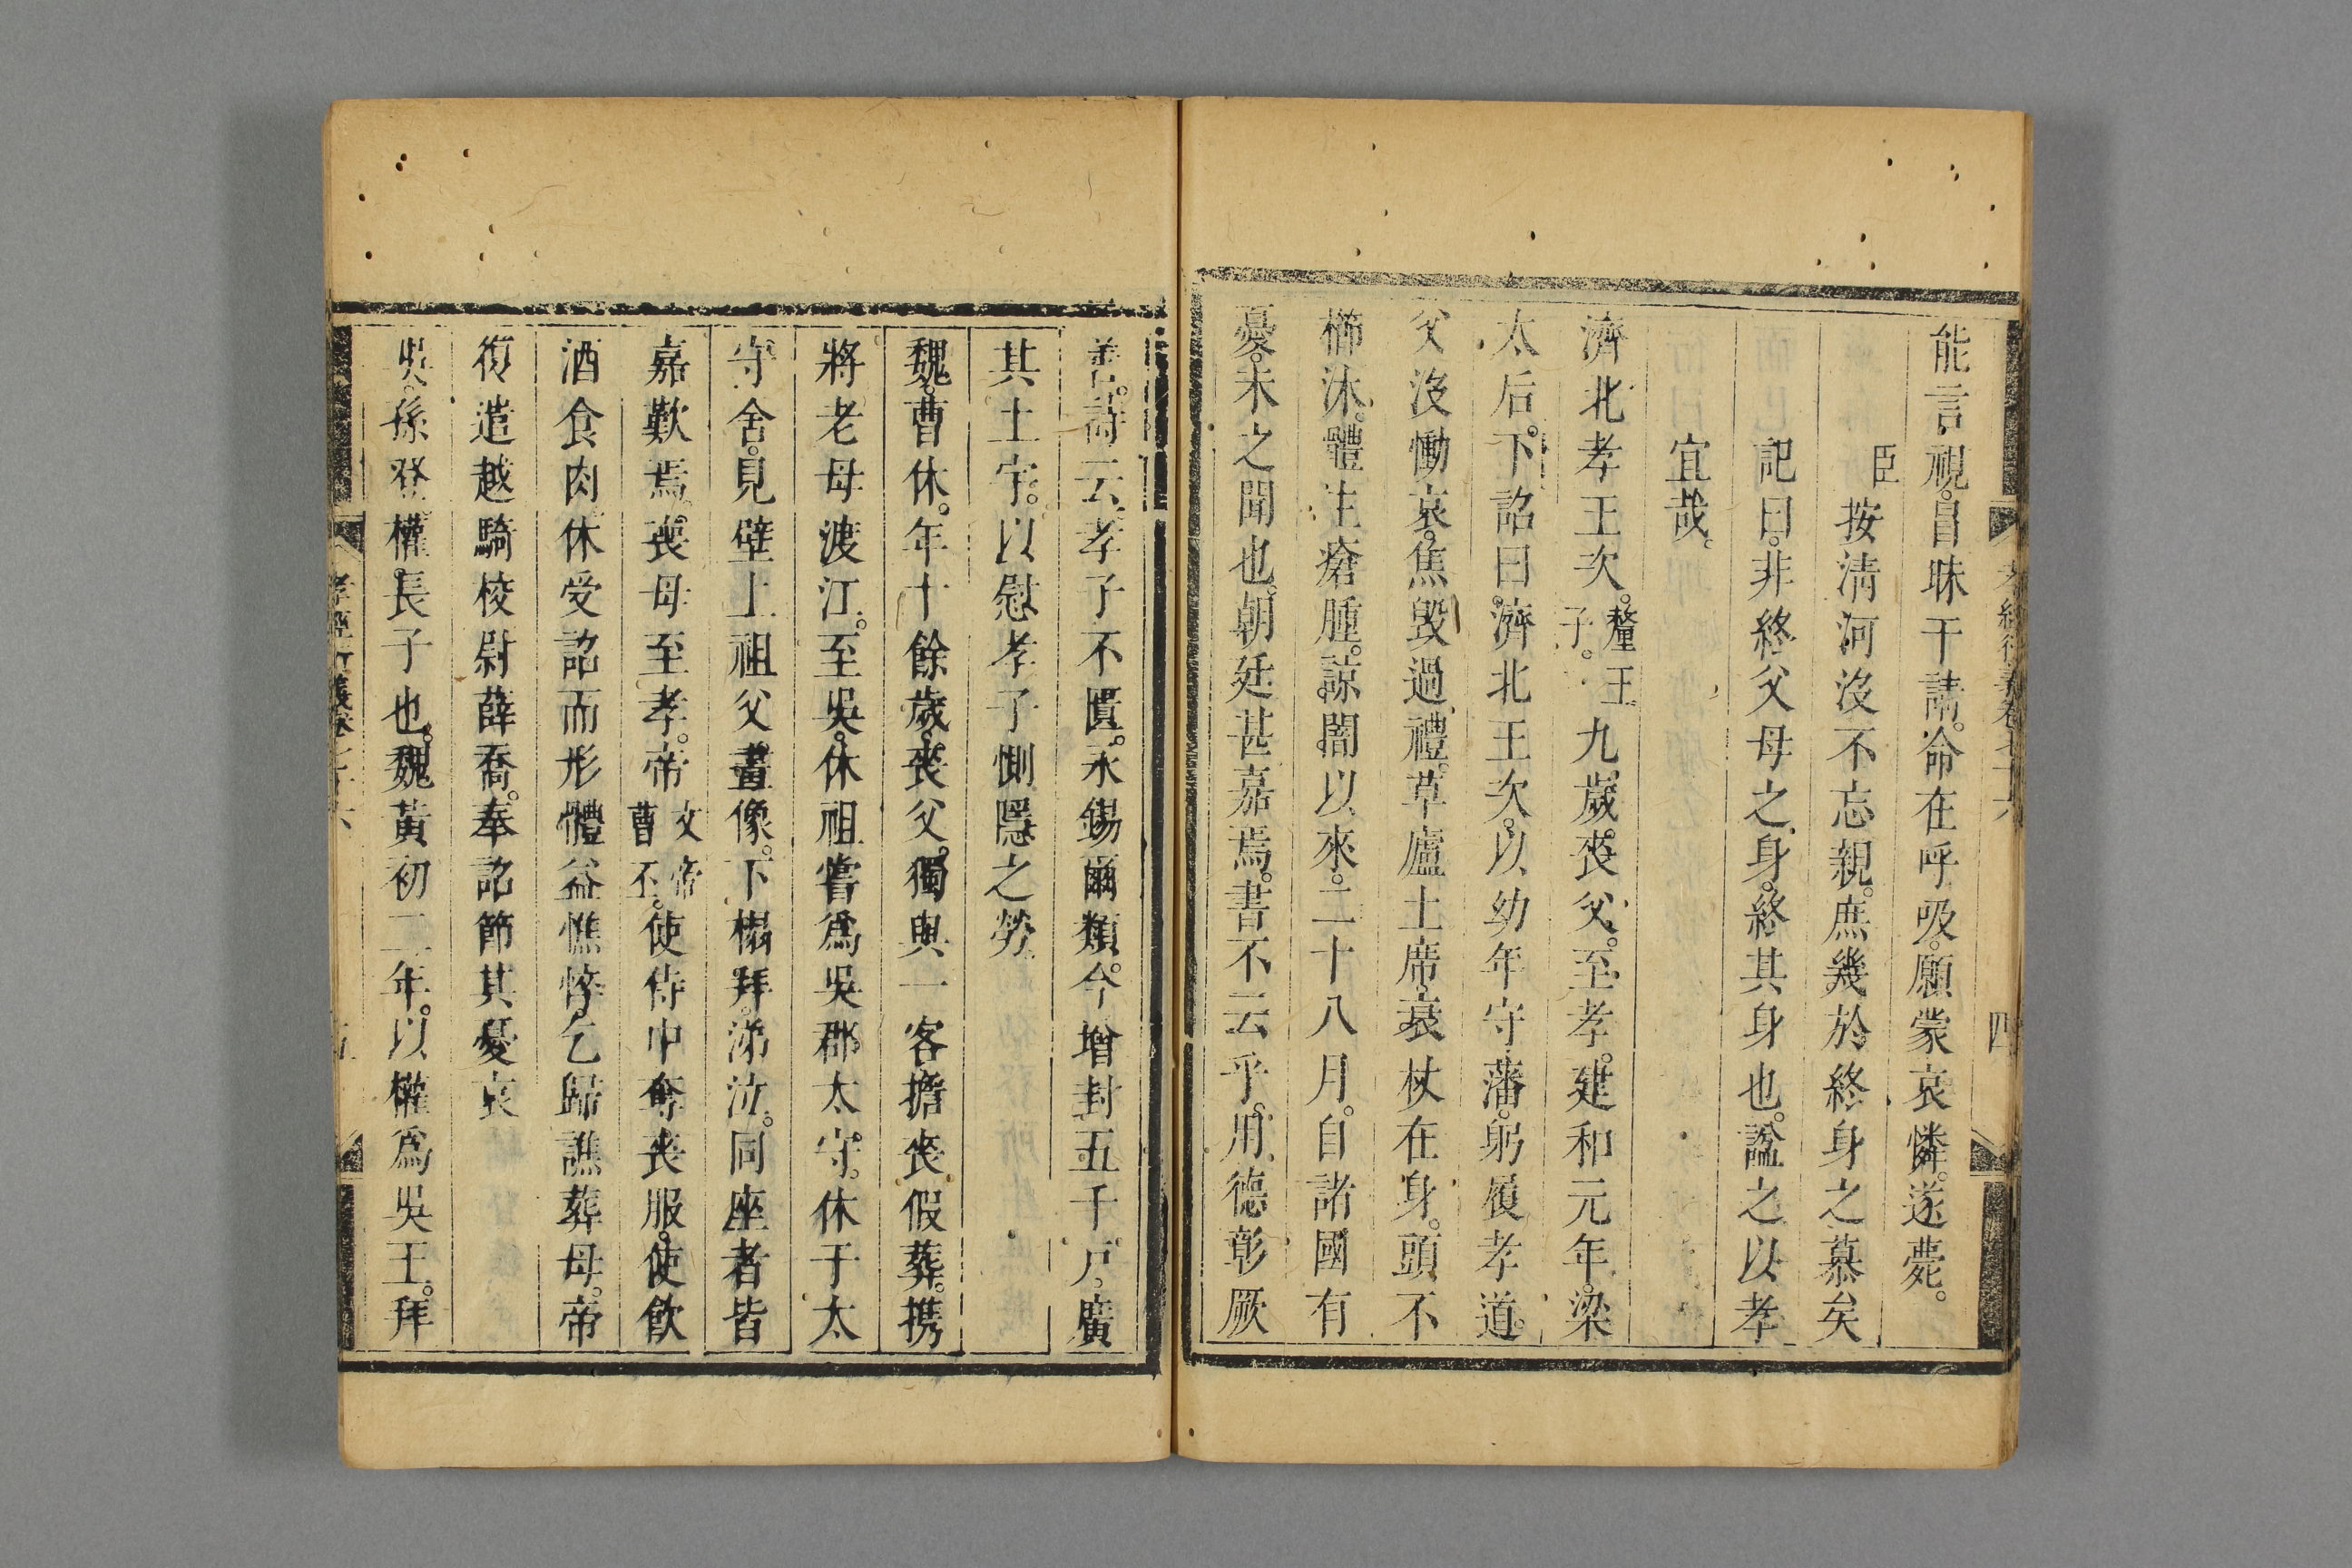 孝經衍義卷七十六
四
能言視。冒昧干請。命在呼吸。願蒙哀憐。遂薨。
臣按清河沒不忘親。庶幾於終身之慕矣
記曰。非終父母之身。終其身也。諡之以孝
宜哉。
濟北孝王次。釐王子。九歲喪父。至孝。建和元年。梁
太后。下詔曰。濟北王次。以幼年守藩。躬履孝道。
父沒慟哀。焦毀過禮。草廬土席。衰杖在身。頭不
櫛沐。體生瘡腫。諒闇以來。二十八月。自諸國有
憂。未之聞也。朝廷甚嘉焉。書不云乎。用德彰厥
善。詩云。孝子不匱。永錫爾類。今增封五千戶。廣
其土宇。以慰孝子惻隱之勞。
魏。曹休。年十餘歲。喪父。獨與一客擔喪假葬。携
將老母渡江。至吳。休祖嘗爲吳郡太守。休于太
守舍。見壁上祖父畫像。下榻拜。涕泣。同座者皆
嘉歎焉。喪母至孝。帝文帝曹丕。使侍中奪喪服。使飲
酒食肉休受詔而形體益憔悴乞歸譙葬母。帝
復遣越騎校尉薛喬。奉詔節其憂哀
吳。孫登。權。長子也。魏黃初二年。以權爲吳王。拜
孝經衍義卷七十六
五